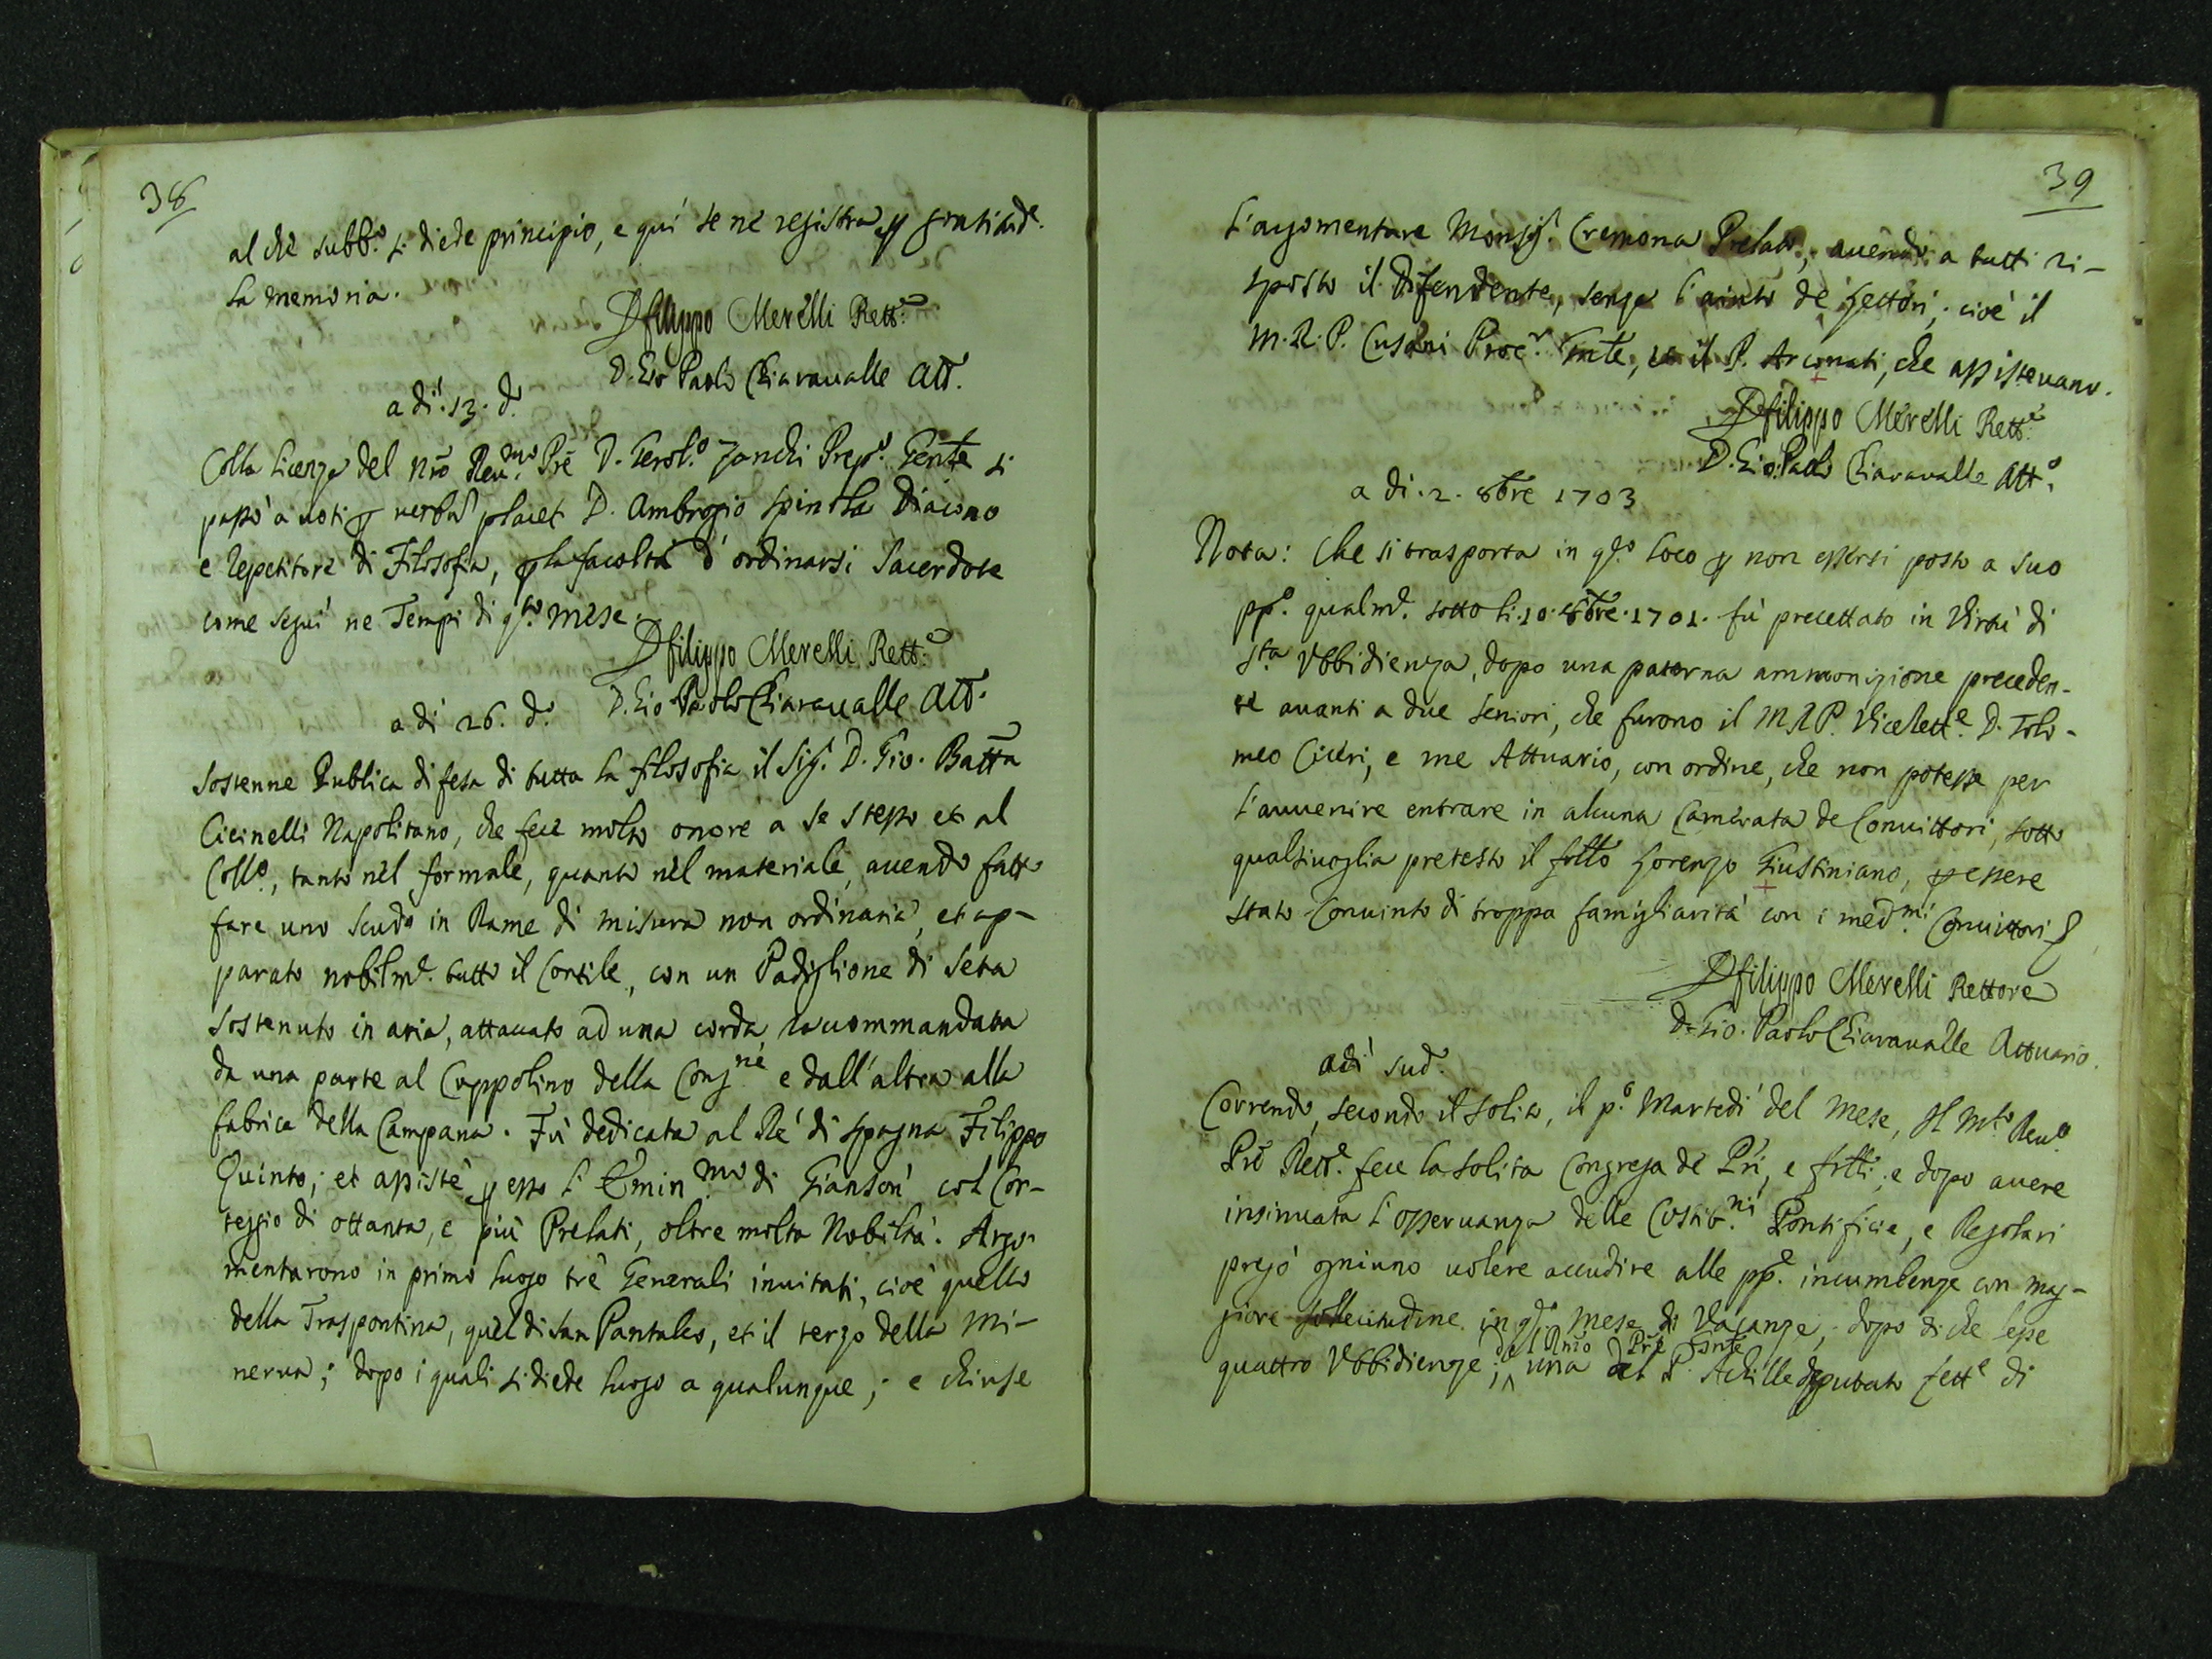 38
al che subb.o si diede principio, e qui se ne registra p gratitud.e
la memoria.
D filippo Merelli Rett.e
D. Gio Paolo Chiaravalle Att.
a dì. 13. d.o
Colla licenza del nrō Reu.mo Prē D. Gerol.o Zanchi Prep.o Gēnte si
passò a uoti p uerbū placet D. Ambrogio Spinola Diacono
e repetitore di Filosofia, p la facoltà d'ordinarsi Sacerdote
come seguì ne Tempi di q.to mese.
D filippo Merelli Rett.e
D. Gio Paolo Chiaraualle Att.
a dì 26. d.o
Sostenne Publica difesa di tutta la filosofia il Sig.r D. Gio. Battā
Cicinelli Napolitano, che fece molto onore a se stesso et al
Coll.o, tanto nel formale, quanto nel materiale, auendo fatto
fare uno scudo in Rame di misura non ordinaria, et ap-
parato nobilm.e tutto il Cortile, con un Padiglione di seta
sostenuto in aria, attacato ad una corda, raccommandata
da una parte al Cuppolino della Cong.ne e dall'altra alla
fabrica della Campana. Fù dedicata al Rè di Spagna Filippo
Quinto; et assistè p esso l'Emin.mo di Giansòn col Cor-
teggio di ottanta, e più Prelati, oltre molta Nobiltà. Argo-
mentarono in primo luogo trè Generali inuitati, cioè quello
della Traspontina, quel di san Pantaleo, et il terzo della Mi-
nerua; dopo i quali si diede luogo a qualunque; e chiuse
39
l'argomentare Monsig.r Cremona Prelato, auendo a tutti ri-
sposto il Difendente, senza l'aiuto de Lettori, cioè il
M. R. P. Cusani Proc.r Gnte, et il P. Arconati, che assisteuano.
D filippo Merelli Rett.e
D. Gio: Paolo Chiaravalle Att.o
a dì. 2. 8bre 1703
Nota: Che si trasporta in q.o loco p non essersi posto a suo
pp.o qualm.e sotto li. 10. 8bre. 1701. fù precettato in Virtù di
S.ta Vbbidienza, dopo una paterna ammonizione preceden-
te auanti a due seniori, che furono il M R P. ViceRett.e D. Tolo-
meo Ciceri, e me Attuario, con ordine, che non potesse per
l'auuenire entrare in alcuna Camerata de Conuittori, sotto
qualsiuoglia pretesto il frllo Lorenzo Giustiniano, p essere
stato Conuinto di troppa famigliarità con i med.mi Conuittori
D filippo Merelli Rettore
D. Gio. Paolo Chiaravalle Attuario.
adì sud.o
Correndo, secondo il solito, il p.o Martedì del mese, Il M.to Reu.o
Prē Rett.e fece la solita Congrega de Pri, e frlli; e dopo auere
insinuata l'osseruanza delle Costit.ni Pontificie, e Regolari
pregò ogniuno uolere accudire alle pp.e incumbenze con mag-
giore sollecitudine in q.o mese di Vacanze, dopo di che lesse
del Rmo Prē Gnte
quattro Vbbidienze; una al P. Achille deputato Lett.e di